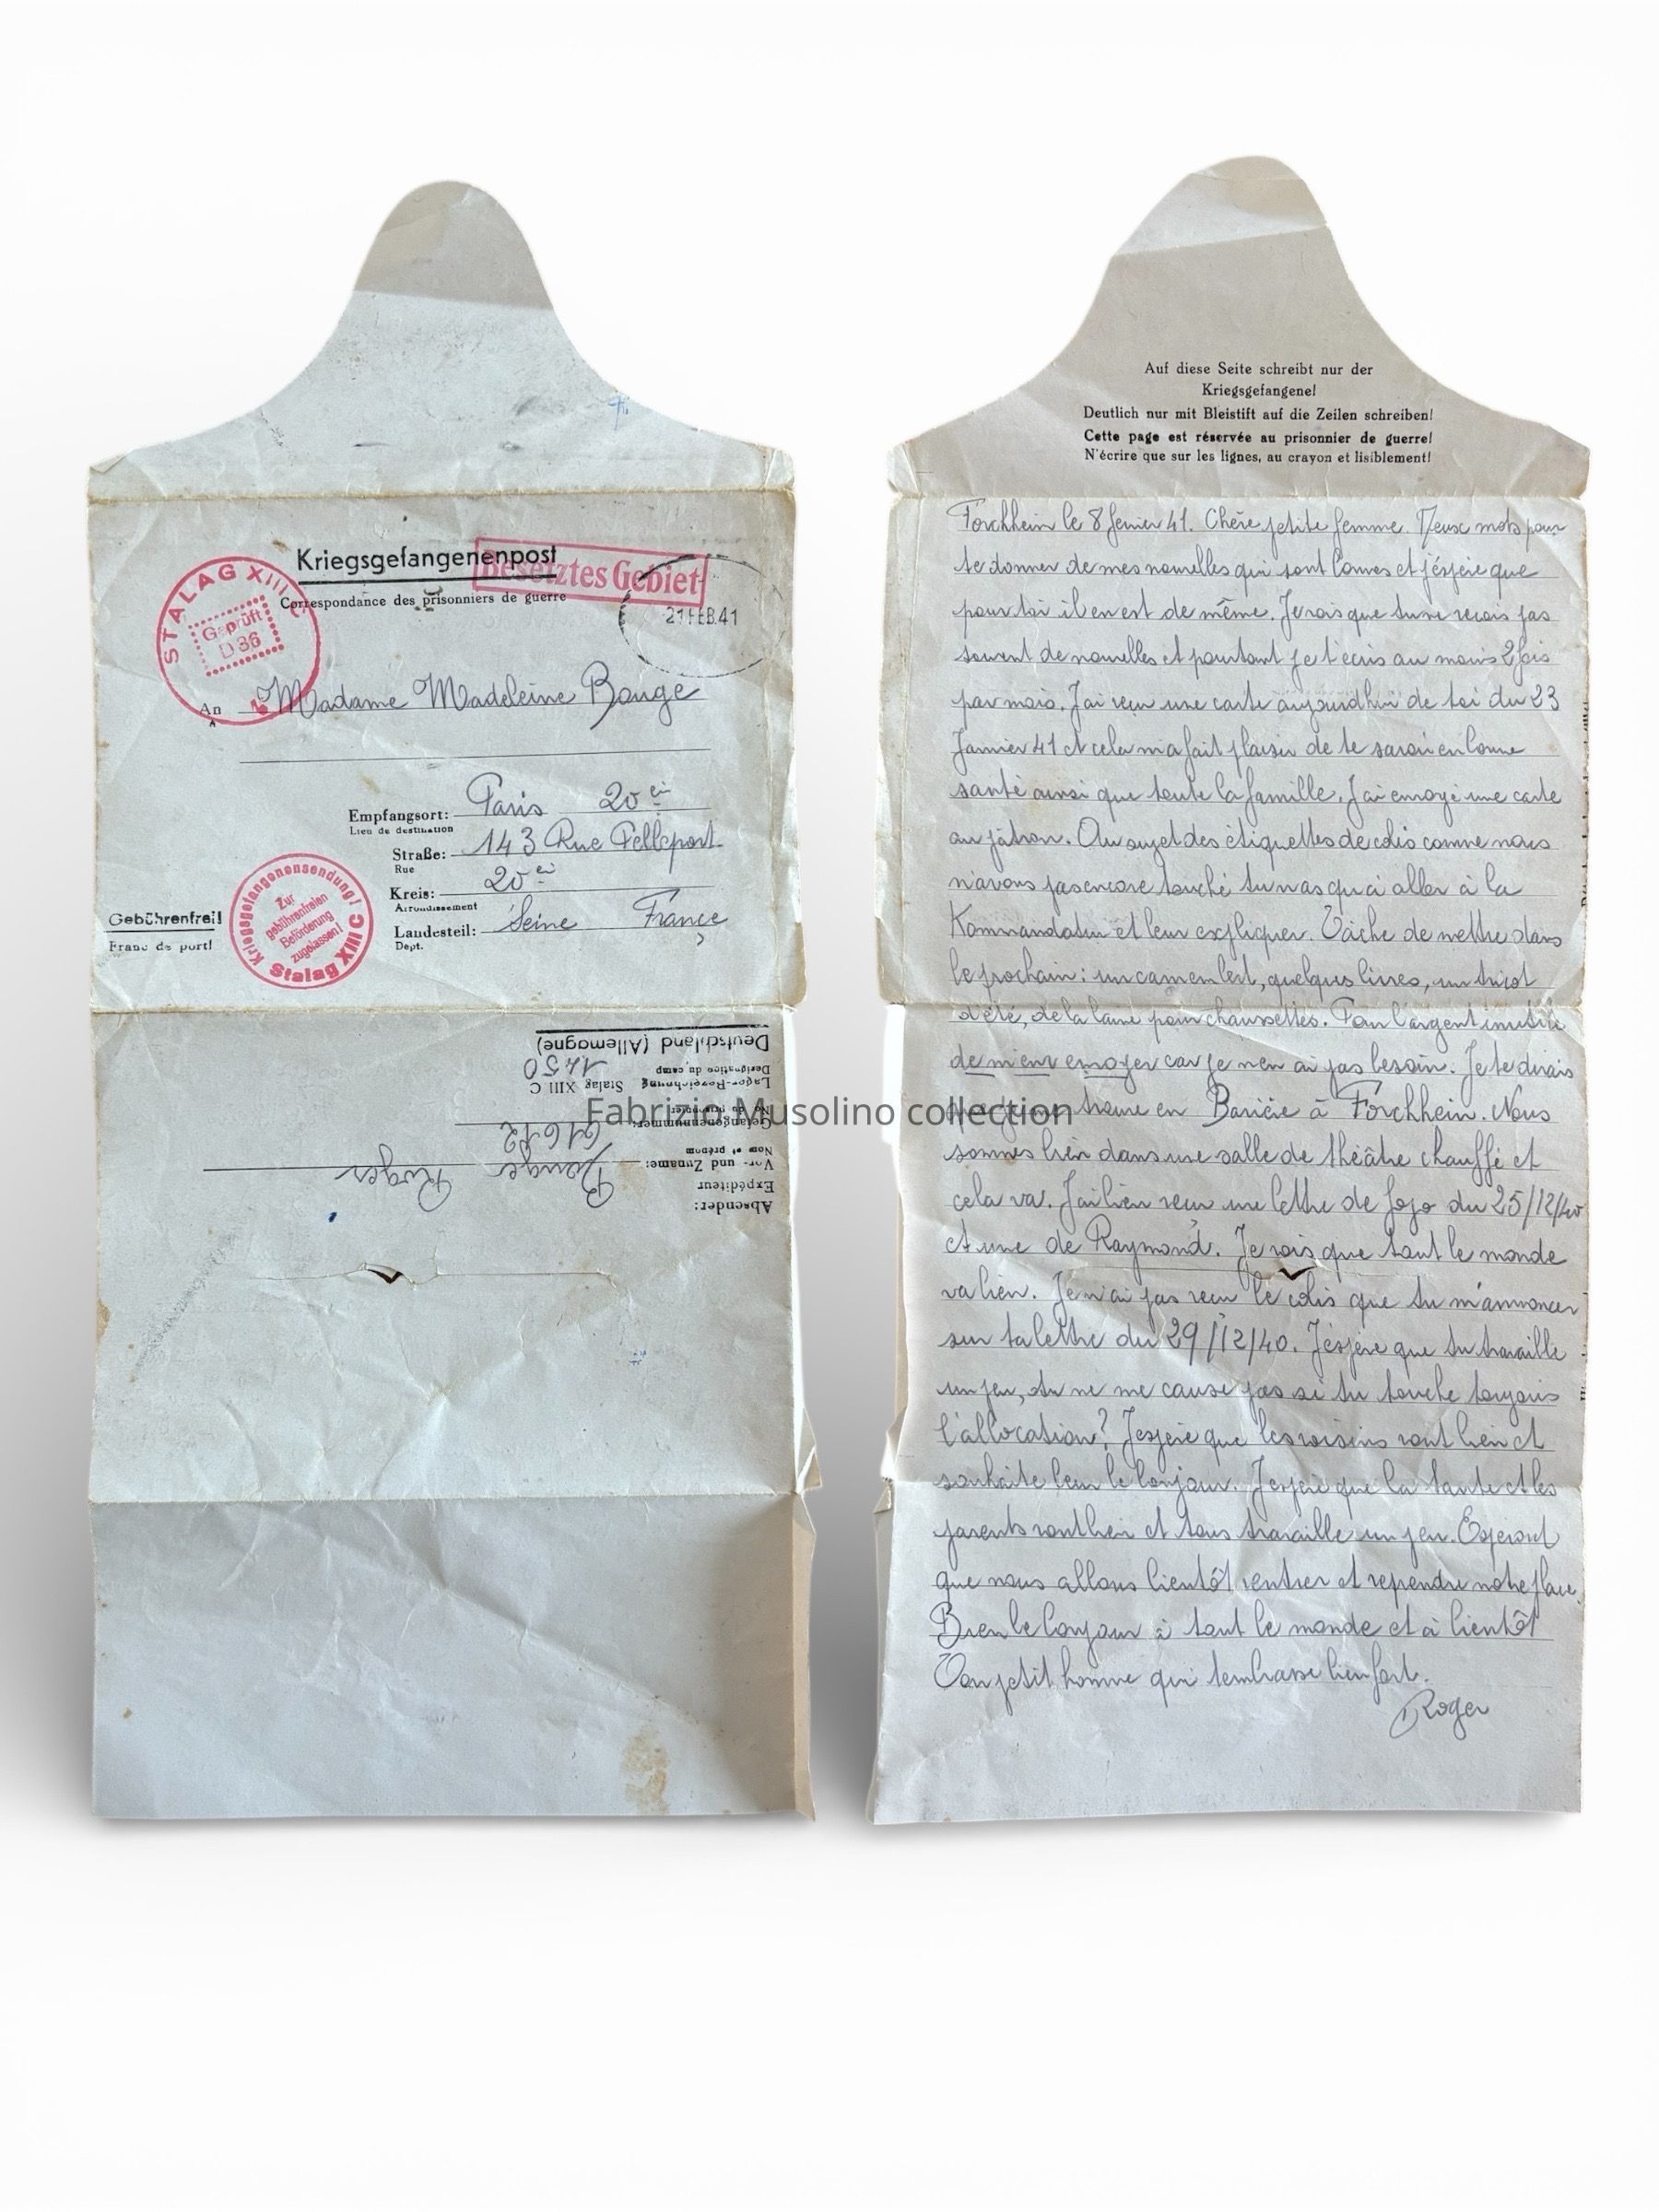 Kriegsgefangenenpost
Correspondance des prisonniers de guerre
Besetztes Gebiet
21 FEB. 41
STALAG XIII C
Geprüft
D 36
An Madame Madeleine Bouge
Empfangsort: Paris 20 ei
Lieu de destination
Straße: 143 Rue Pelleport
Rue
Kreis: 20 ei
Arrondissement
Landesteil: Seine France
Dept.
Gebührenfrei!
Franc de port!
Kriegsgefangenensendung!
Zur
gebührenfreien
Beförderung
zugelassen!
Stalag XIII C
Absender:
Expéditeur
Vor- und Zuname: Bouge Roger
Nom et prénom
Gefangenennummer: 61612
No. du prisonnier
Lager-Bezeichnung Stalag XIII C
Désignation du camp 1450
Deutschland (Allemagne)
Auf diese Seite schreibt nur der
Kriegsgefangene!
Deutlich nur mit Bleistift auf die Zeilen schreiben!
Cette page est réservée au prisonnier de guerre!
N'écrire que sur les lignes, au crayon et lisiblement!
Forchhein le 8 fevrier 41. Chère petite femme. Deux mots pour
te donner de mes nouvelles qui sont bonnes et j'éspère que
pour toi il en est de même. Je vois que tu ne recois pas
souvent de nouvelles et pourtant je t'écris au moins 2 fois
par mois. J'ai reçu une carte aujourdhui de toi du 23
Janvier 41 et cela m'a fait plaisir de te savoir en bonne
santé ainsi que toute la famille. J'ai envoyé une carte
au patron. Au sujet des étiquettes de colis comme nous
n'avons pas encore touché tu n'as qu'à aller à la
Kommandatur et leur expliquer. Tâche de mettre dans
le prochain: un camembert, quelques livres, un tricot
d'été, de la laine pour chaussettes. Pour l'argent inutile
de m'en envoyer car je n'en ai pas besoin. Je te dirais
que je me trouve en Bavière à Forchhein. Nous
sommes bien dans une salle de théâtre chauffé et
cela va. J'ai bien reçu une lettre de Jojo du 25/12/40
et une de Raymond. Je vois que tout le monde
va bien. Je n'ai pas reçu le colis que tu m'annonces
sur ta lettre du 29/12/40. J'éspère que tu travaille
un peu, tu ne me cause pas si tu touche toujours
l'allocation? J'espère que les voisins vont bien et
souhaite leur le bonjour. J'espère que la tante et les
parents vont bien et tous travaille un peu. Espéront
que nous allons bientôt rentrer et reprendre notre place.
Bien le bonjour à tout le monde et à bientôt
Ton petit homme qui t'embrasse bien fort.
Roger
Fabrizio Musolino collection